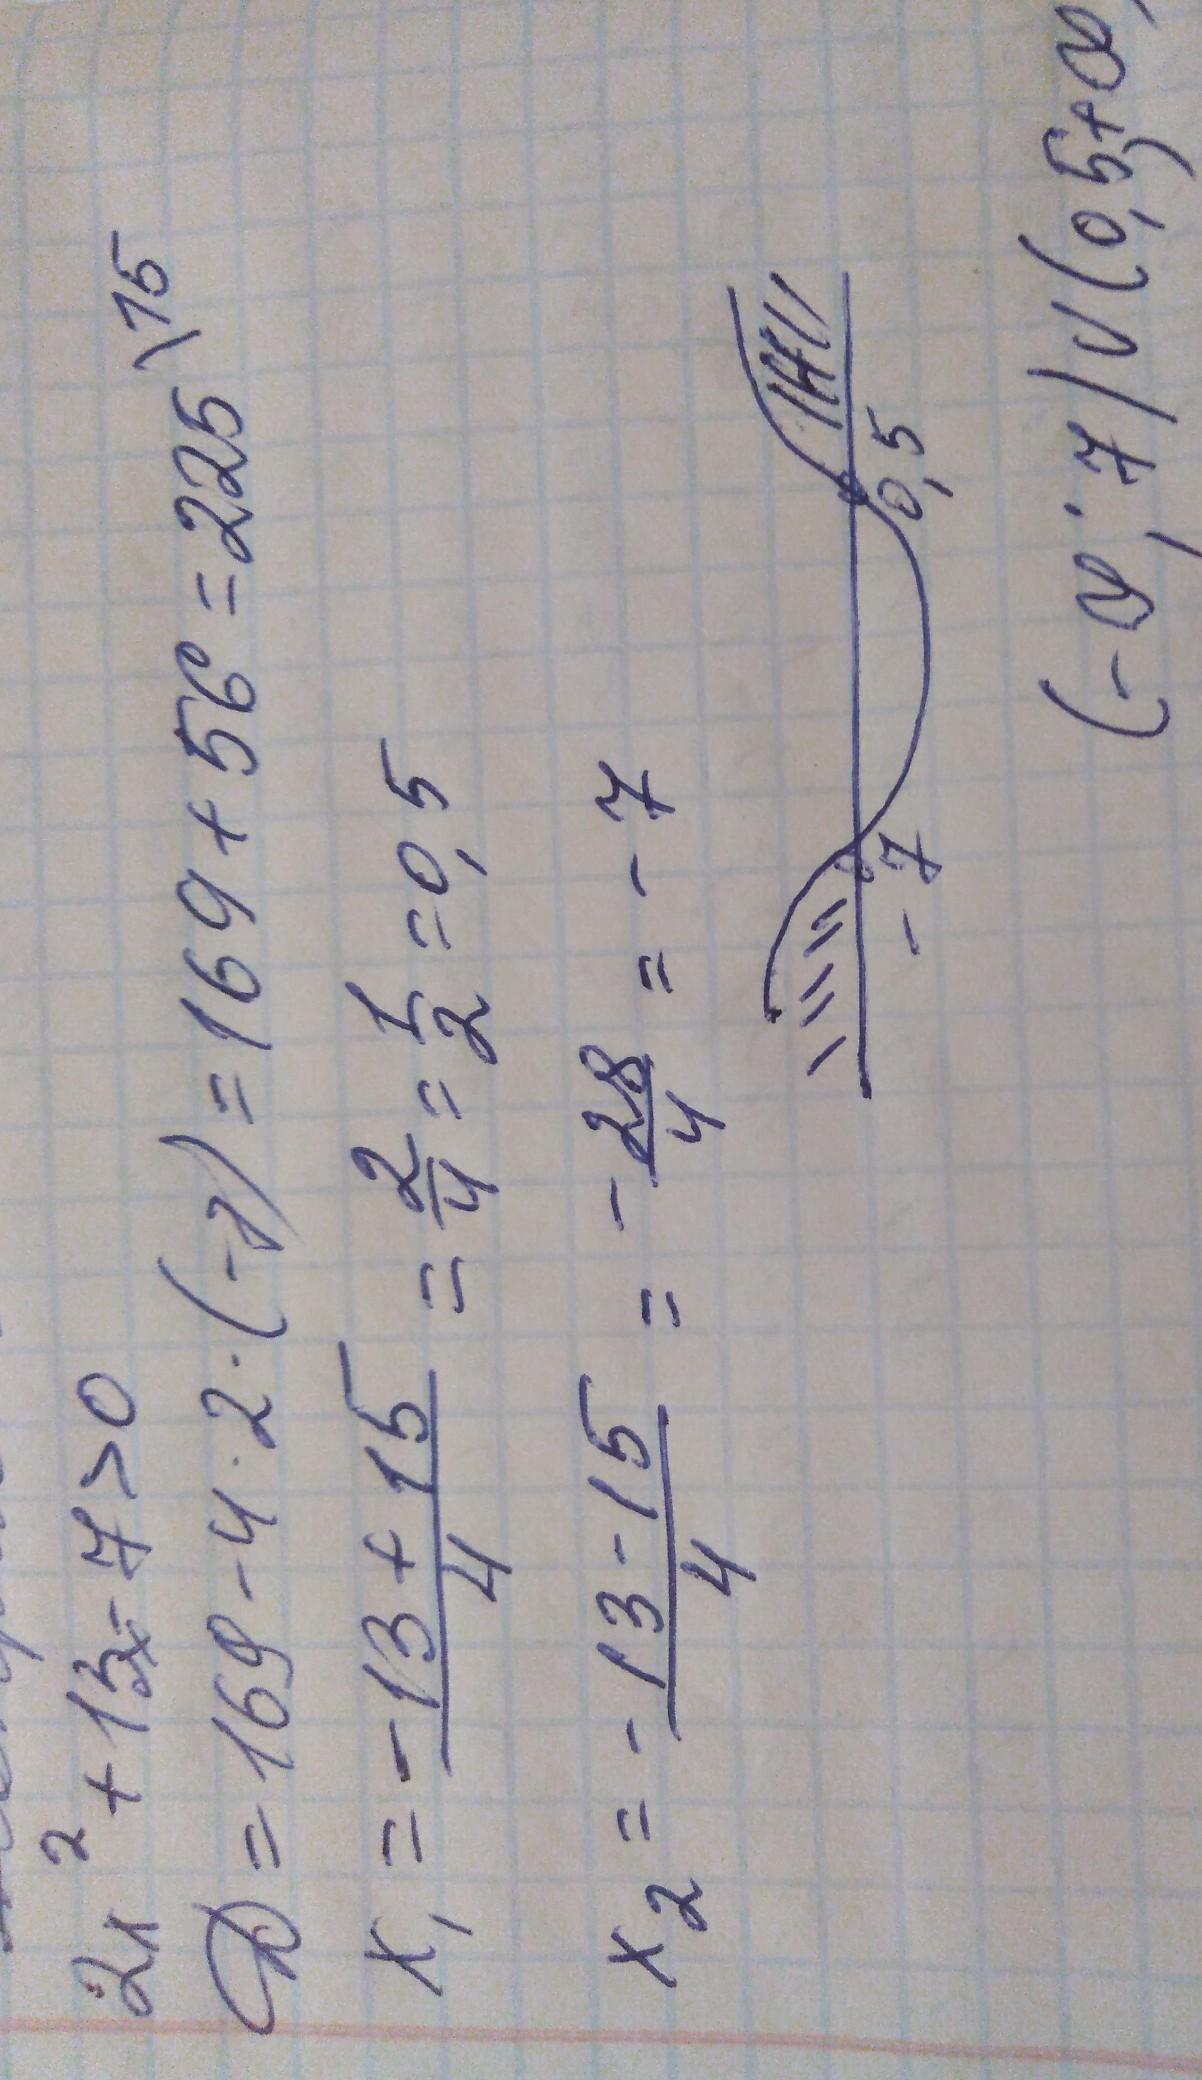 2x² + 13x - 7 > 0
D = 169 - 4 · 2 · (-7) = 169 + 56 = 225 \15
x₁ = (-13 + 15)/4 = 2/4 = 1/2 = 0,5
x₂ = (-13 - 15)/4 = -28/4 = -7
-7 0,5
(-∞; 7) ∪ (0,5; +∞)